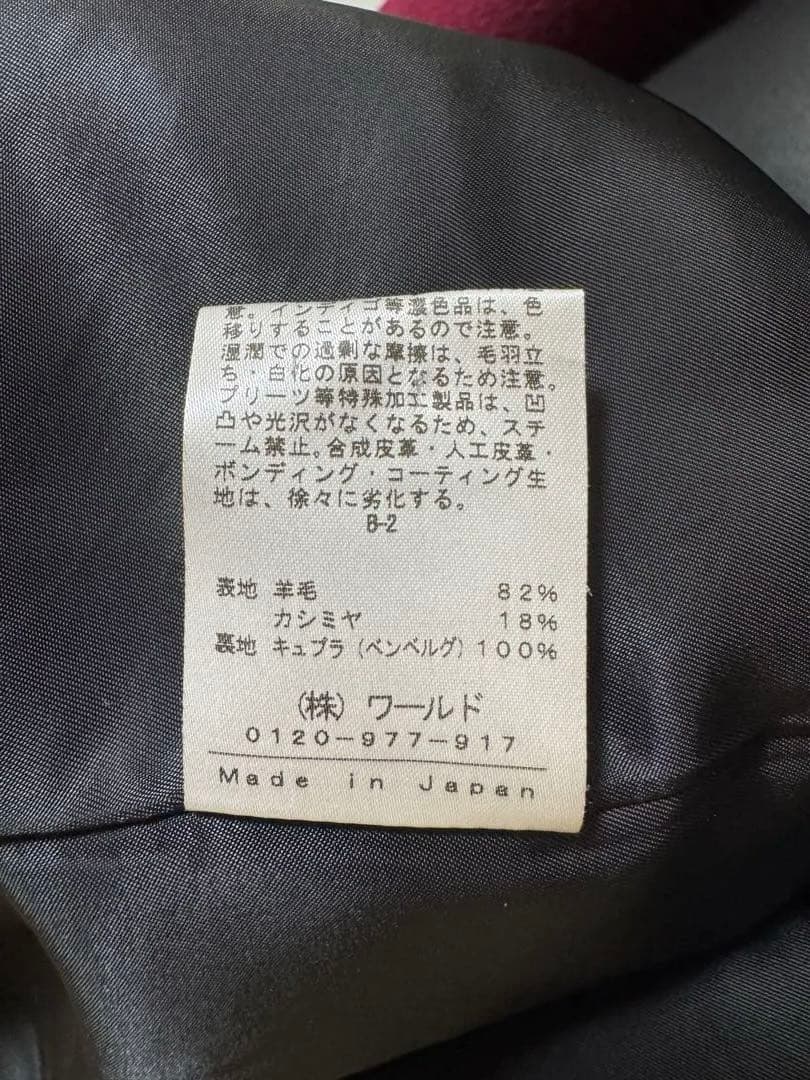 意。インディゴ等濃色品は、色
移りすることがあるので注意。
湿潤での過剰な摩擦は、毛羽立
ち・白化の原因となるため注意。
プリーツ等特殊加工製品は、凹
凸や光沢がなくなるため、スチ
ーム禁止。合成皮革・人工皮革・
ボンディング・コーティング生
地は、徐々に劣化する。
B-2
表地 羊毛 82%
カシミヤ 18%
裏地 キュプラ(ベンベルグ) 100%
(株) ワールド
0120-977-917
Made in Japan